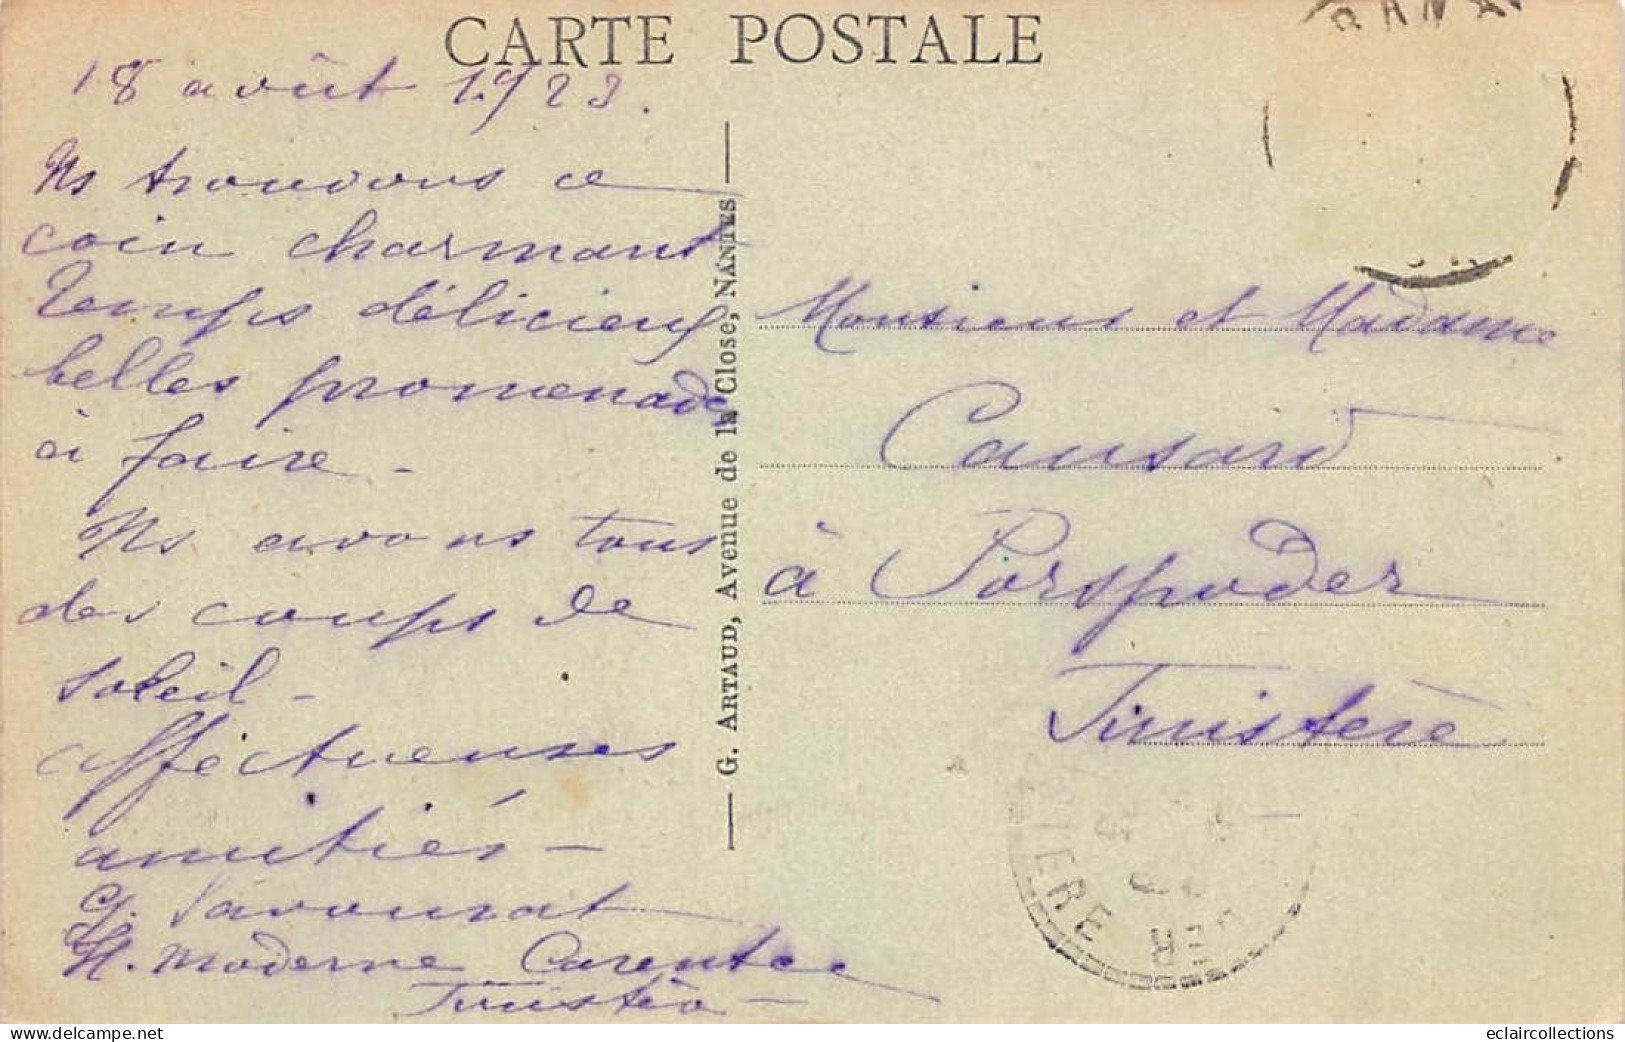 CARTE POSTALE
18 août 1923.
Ns trouvons ce
coin charmant
temps délicieux
belles promenades
à faire -
Ns avons tous
des coups de
soleil -
Affectueuses
amitiés -
G. Savourat
H. moderne Carentec
Finistère -
G. ARTAUD, Avenue de la Close, NANTES
Monsieur et Madame
Causard
à Porspoder
Finistère
eclaircollections